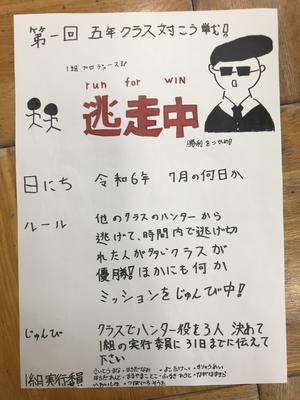 第一回 五年クラス対こう戦!!
1組プロデュース!!
run for WIN
逃走中
勝利をつかめ!
日にち 令和6年 7月の何日か
ルール 他のクラスのハンターから
逃げて、時間内で逃げ切
れた人が多いクラスが
優勝!!ほかにも何か
ミッションをじゅんび中!!
じゅんび クラスでハンター役を3人決めて
1組の実行委員に31日までに伝えて
下さい
1組実行委員